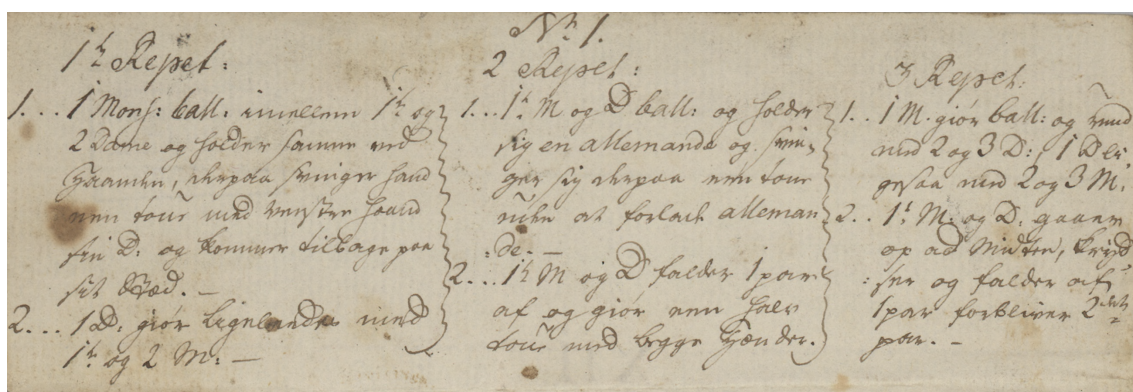 No 1.
1te Repet:
1... 1 Mons: ball: imellem 1te og
2 Dame og holder samme ved
Haanden, derpaa svinger hand
een tour med venstre Haand
sin D: og kommer tilbage paa
sit Stæd. —
2... 1 D: giør ligeledes med
1te og 2 M: —
2 Repet:
1... 1te M og D ball: og holder
sig en allemande og svin„
ger sig derpaa een tour
uden at forlade alleman
:de. —
2... 1te M og D falder 1 par
af og giør een halv
tour med begge Hænder.
3 Repet:
1.. 1 M. giør ball: og rund
med 2 og 3 D:, 1 D li„
gesaa med 2 og 3 M.
2.. 1te M: og D: gaaer
op ad Midten, kryd„
:ser og falder af
1 par forbliver 2det
par. —